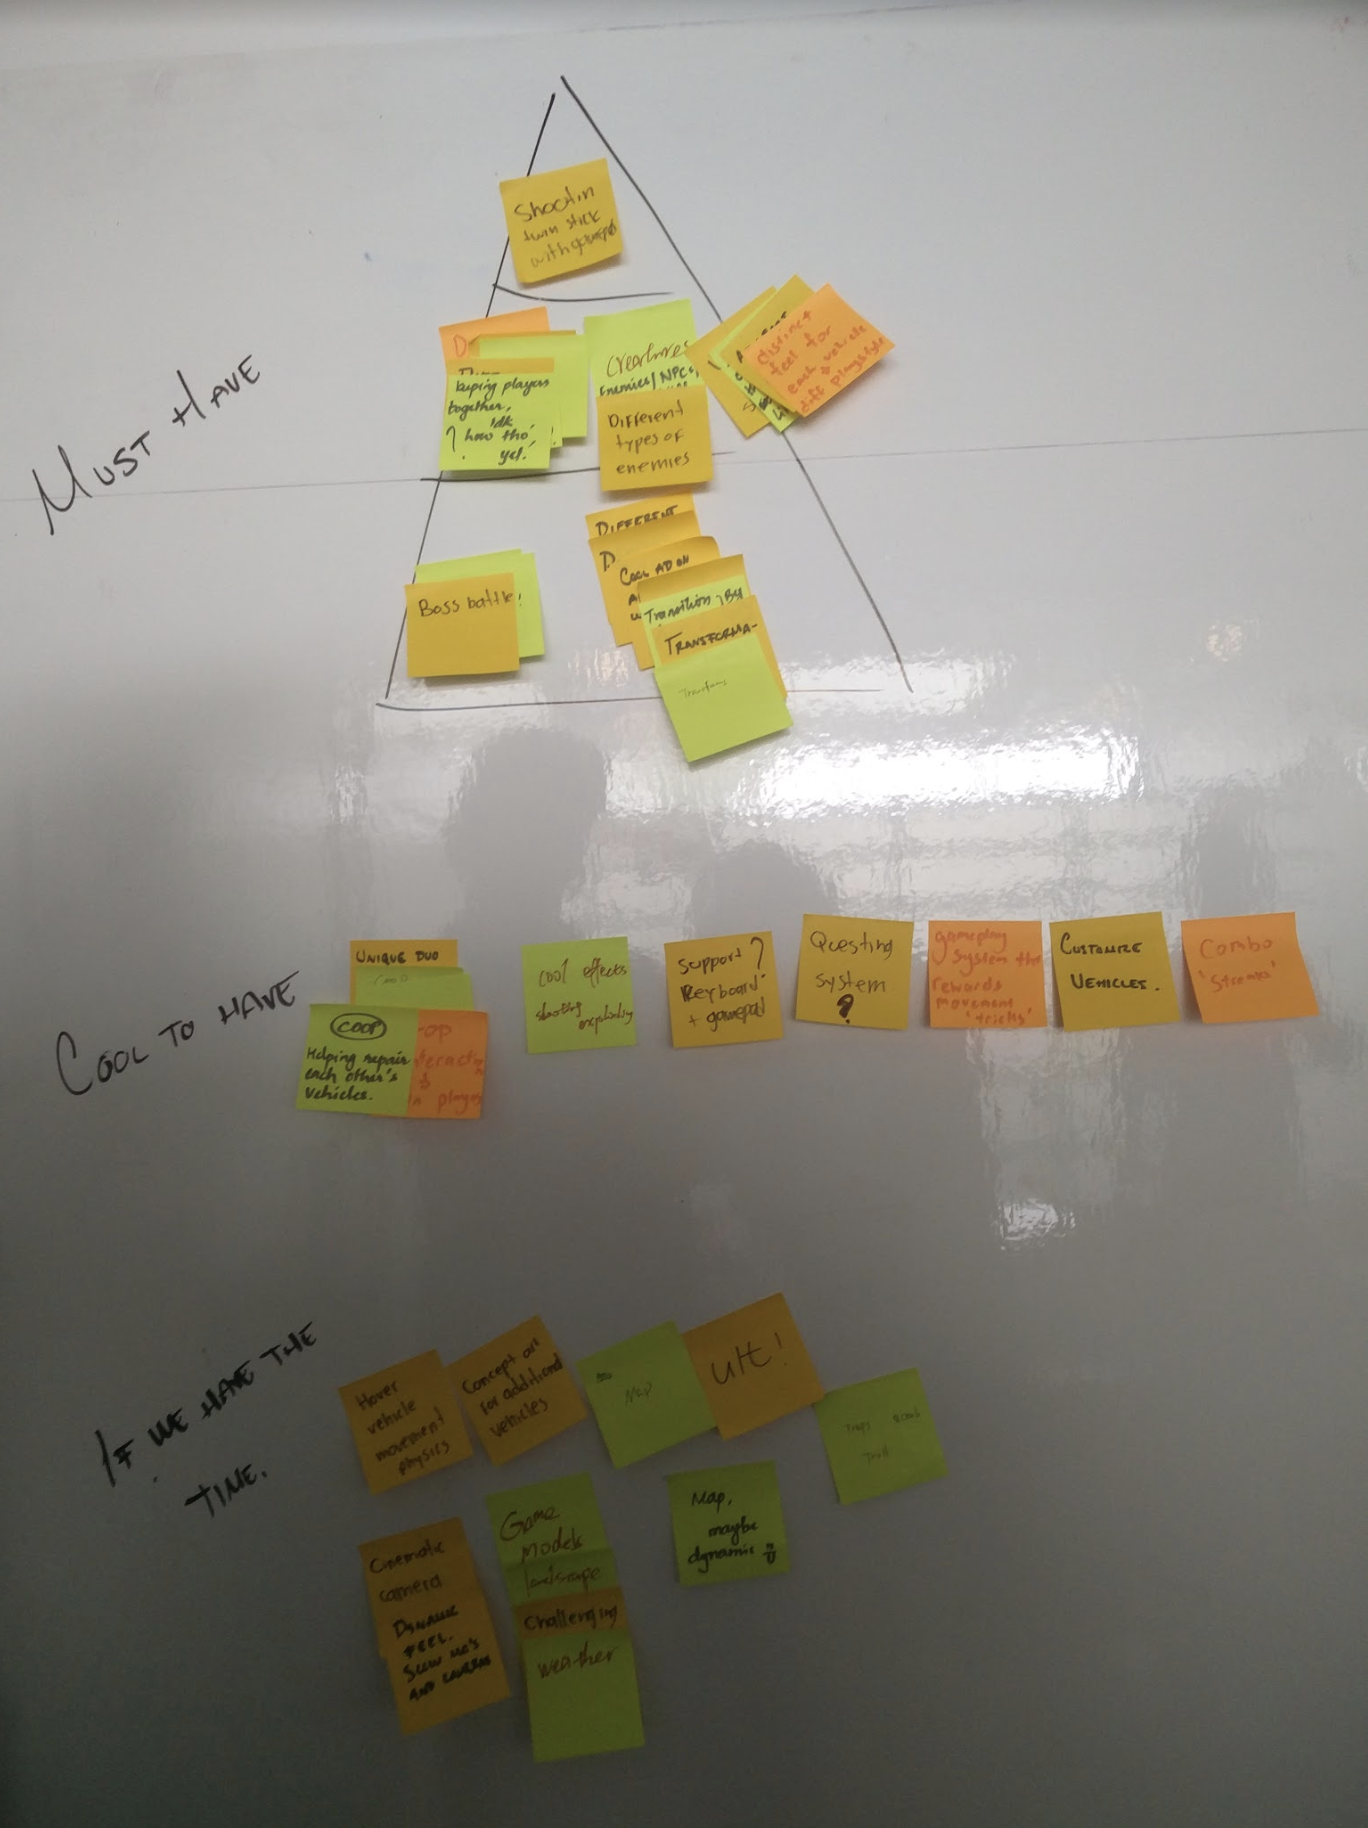 MUST HAVE
Shootin
twin stick
with gamepad
D
keeping players
together,
idk
? how tho'
yet.
!
Creatures
Enemies/NPCs
Different
types of
enemies
distinct
feel for
each vehicle
diff playstyle
Boss battle!
DIFFERENT
D
COOL AD ON
Transition, By
TRANSFORMA-
Transform
COOL TO HAVE
UNIQUE DUO
COOP
Helping repair
each other's
vehicles.
op
teraction
players
cool effects
shooting
exploding
Support ?
Keyboard
+ gamepad
Questing
system
?
gameplay
system tha
rewards
movement
'tricks'
CUSTOMIZE
VEHICLES.
Combo
'Streaks'
IF WE HAVE THE
TIME.
Hover
vehicle
movement
physics
Concept art
for additional
vehicles
Map
ult!
Traps
Troll
Cinematic
camera
DYNAMIC
FEEL.
SLOW MO'S
AND
Game
models
landscape
Challenging
weather
Map,
maybe
dynamic